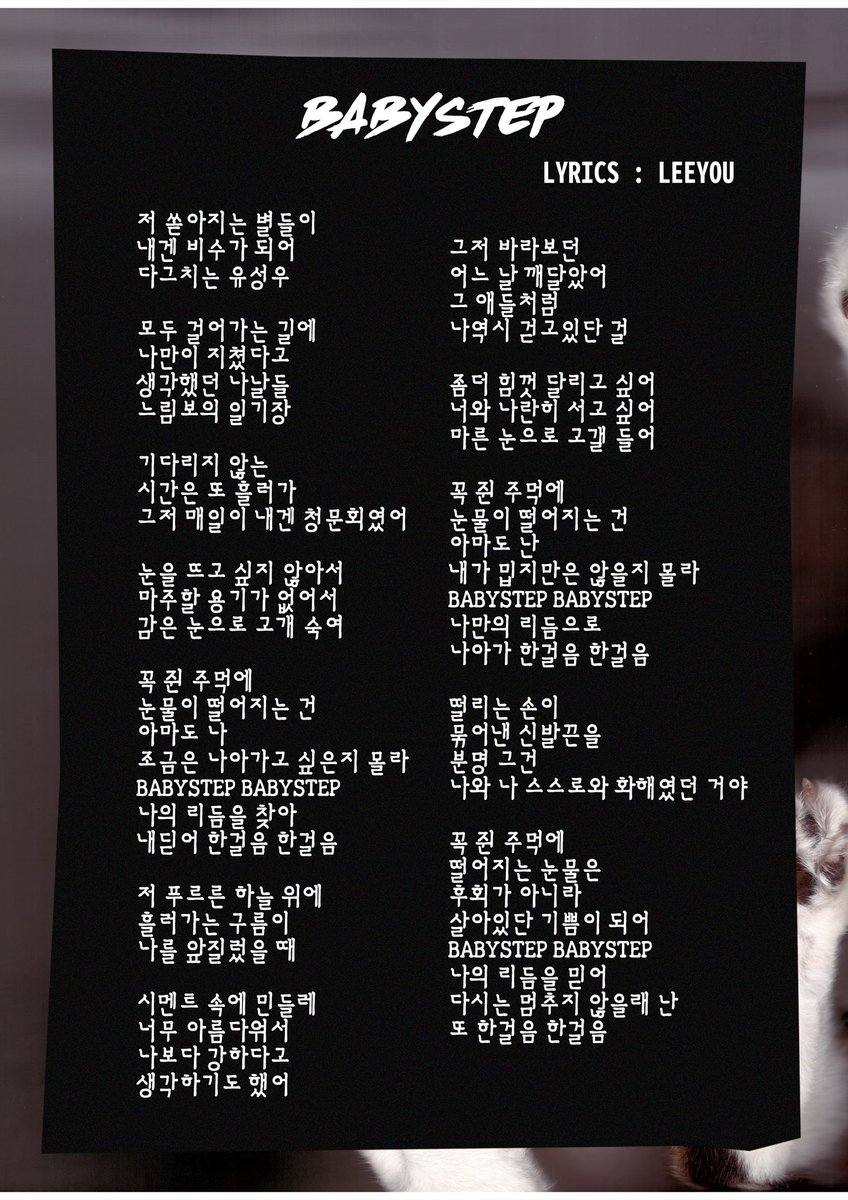 BABYSTEP
LYRICS : LEEYOU
저 쏟아지는 별들이
내겐 비수가 되어
다그치는 유성우
모두 걸어가는 길에
나만이 지쳤다고
생각했던 나날들
느림보의 일기장
기다리지 않는
시간은 또 흘러가
그저 매일이 내겐 청문회였어
눈을 뜨고 싶지 않아서
마주할 용기가 없어서
감은 눈으로 고개 숙여
꼭 쥔 주먹에
눈물이 떨어지는 건
아마도 나
조금은 나아가고 싶은지 몰라
BABYSTEP BABYSTEP
나의 리듬을 찾아
내딛어 한걸음 한걸음
저 푸르른 하늘 위에
흘러가는 구름이
나를 앞질렀을 때
시멘트 속에 민들레
너무 아름다워서
나보다 강하다고
생각하기도 했어
그저 바라보던
어느 날 깨달았어
그 애들처럼
나역시 걷고있단 걸
좀더 힘껏 달리고 싶어
너와 나란히 서고 싶어
마른 눈으로 고갤 들어
꼭 쥔 주먹에
눈물이 떨어지는 건
아마도 난
내가 밉지만은 않을지 몰라
BABYSTEP BABYSTEP
나만의 리듬으로
나아가 한걸음 한걸음
떨리는 손이
묶어낸 신발끈을
분명 그건
나와 나 스스로와 화해였던 거야
꼭 쥔 주먹에
떨어지는 눈물은
후회가 아니라
살아있단 기쁨이 되어
BABYSTEP BABYSTEP
나의 리듬을 믿어
다시는 멈추지 않을래 난
또 한걸음 한걸음